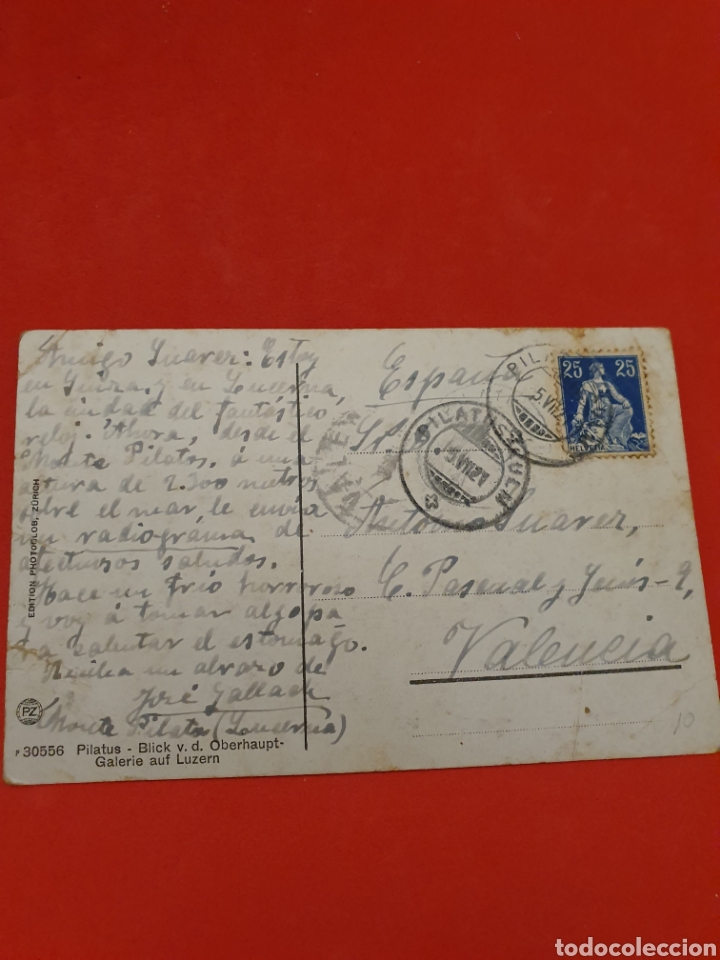 Amigo Suarez: Estoy
en Suiza, y en Lucerna,
la ciudad del fantástico
reloj. Ahora, desde el
Monte Pilatos, á una
altura de 2.300 metros
sobre el mar, le envia
un radiográma de
afectuosos saludos.
Hace un frio horroroso
y voy á tomar algo pa
ra calentar el estomago.
Reciba un abrazo de
José Gallach
Monte Pilatos (Lucerna)
P 30556 Pilatus - Blick v. d. Oberhaupt-
Galerie auf Luzern
EDITION PHOTOGLOB, ZÜRICH
PZ
España
Sr.
Antonio Suarez,
C. Pascual y Genis-9,
Valencia
25 25
HELVETIA
PILATUS KULM
5.VII.21
PILA
5.VII
10
todocoleccion